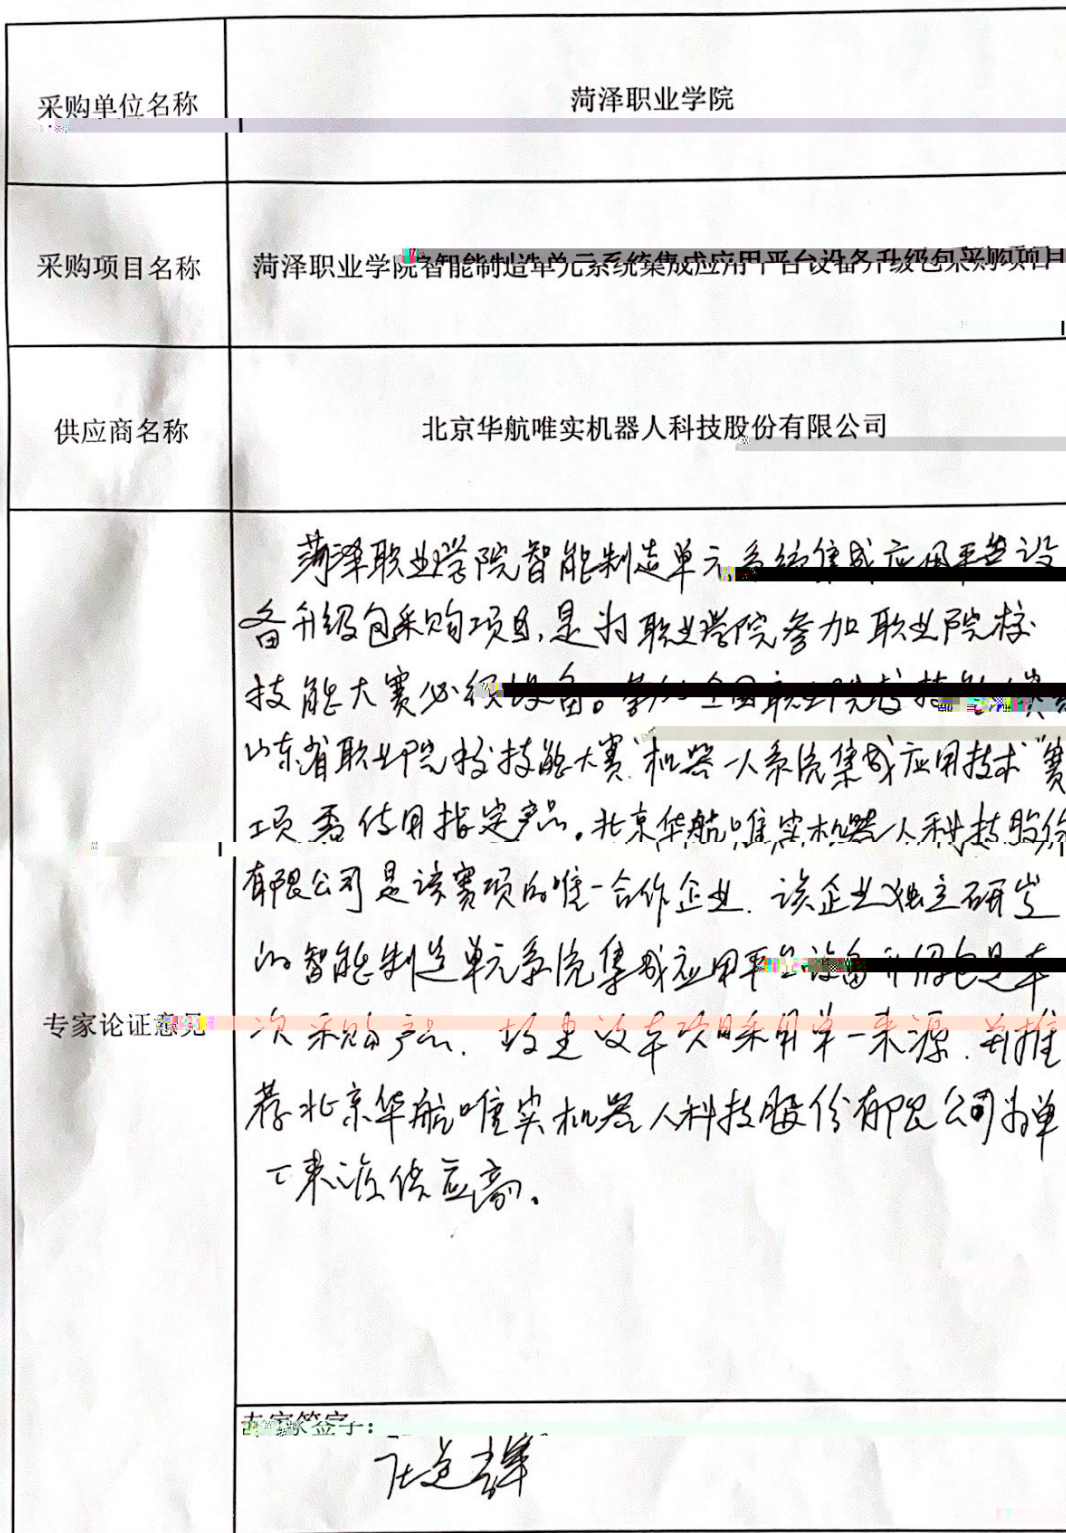 采购单位名称
菏泽职业学院
采购项目名称
菏泽职业学院智能制造单元系统集成应用平台设备升级包采购项目
供应商名称
北京华航唯实机器人科技股份有限公司
专家论证意见
菏泽职业学院智能制造单元系统集成应用平台设
备升级包采购项目,是为职业学院参加职业院校
技能大赛必须设备。参加全国职业院校技能大赛
山东省职业院校技能大赛“机器人系统集成应用技术”赛
项需使用指定产品。北京华航唯实机器人科技股份
有限公司是该赛项的唯一合作企业.该企业独立研发
的智能制造单元系统集成应用平台设备升级包是本
次采购产品.故建议本项目采用单一来源.并推
荐北京华航唯实机器人科技股份有限公司为单
一来源供应商。
专家签字: